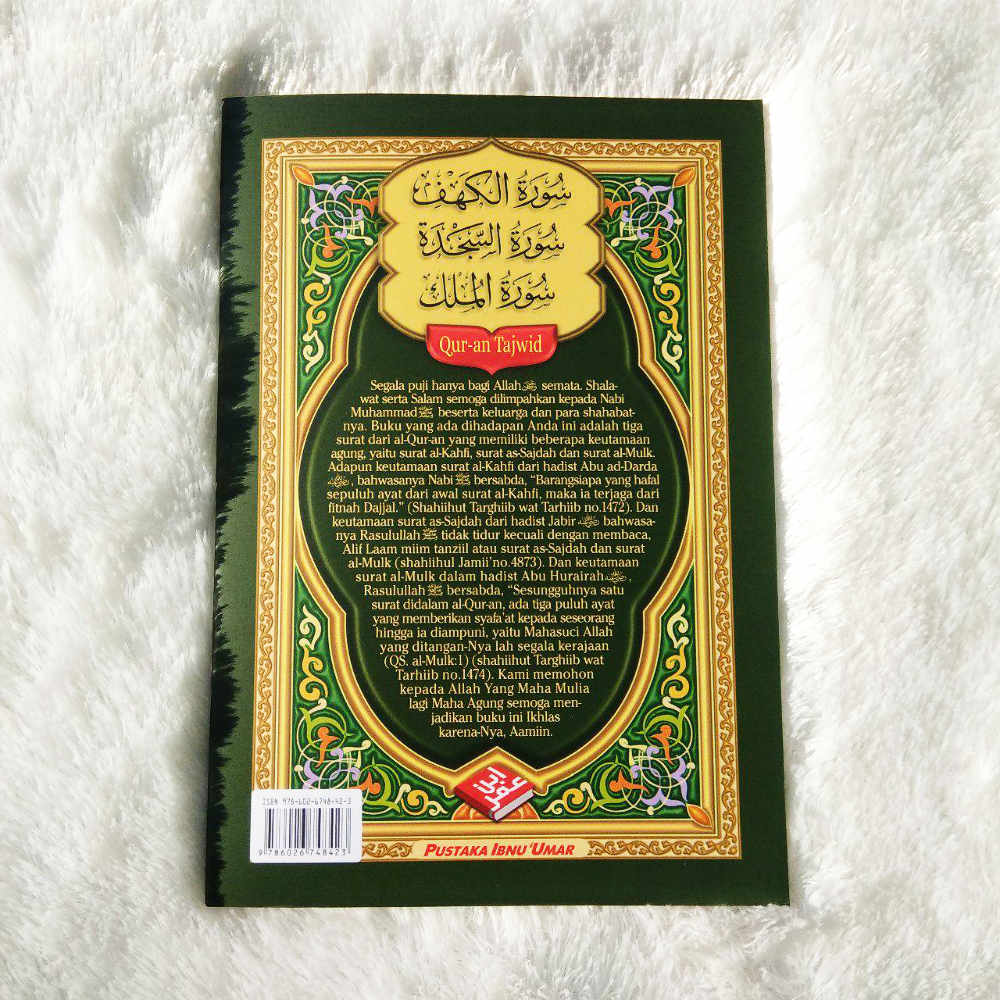 سُورَةُ الكَهْفِ
سُورَةُ السَّجْدَةِ
سُورَةُ المُلْكِ
Qur-an Tajwid
Segala puji hanya bagi Allah ﷻ semata. Shala-
wat serta Salam semoga dilimpahkan kepada Nabi
Muhammad ﷺ, beserta keluarga dan para shahabat-
nya. Buku yang ada dihadapan Anda ini adalah tiga
surat dari al-Qur-an yang memiliki beberapa keutamaan
agung, yaitu surat al-Kahfi, surat as-Sajdah dan surat al-Mulk.
Adapun keutamaan surat al-Kahfi dari hadist Abu ad-Darda
, bahwasanya Nabi ﷺ bersabda, “Barangsiapa yang hafal
sepuluh ayat dari awal surat al-Kahfi, maka ia terjaga dari
fitnah Dajjal.” (Shahiihut Targhiib wat Tarhiib no.1472). Dan
keutamaan surat as-Sajdah dari hadist Jabir bahwasa-
nya Rasulullah ﷺ tidak tidur kecuali dengan membaca,
Alif Laam miim tanziil atau surat as-Sajdah dan surat
al-Mulk (shahiihul Jamii’no.4873). Dan keutamaan
surat al-Mulk dalam hadist Abu Hurairah ,
Rasulullah ﷺ bersabda, “Sesungguhnya satu
surat didalam al-Qur-an, ada tiga puluh ayat
yang memberikan syafa’at kepada seseorang
hingga ia diampuni, yaitu Mahasuci Allah
yang ditangan-Nya lah segala kerajaan
(QS. al-Mulk:1) (shahiihut Targhiib wat
Tarhiib no.1474). Kami memohon
kepada Allah Yang Maha Mulia
lagi Maha Agung semoga men-
jadikan buku ini Ikhlas
karena-Nya, Aamiin.
ابن عمر
PUSTAKA IBNU ‘UMAR
ISBN 978-602-6748-42-3
9 786026 748423